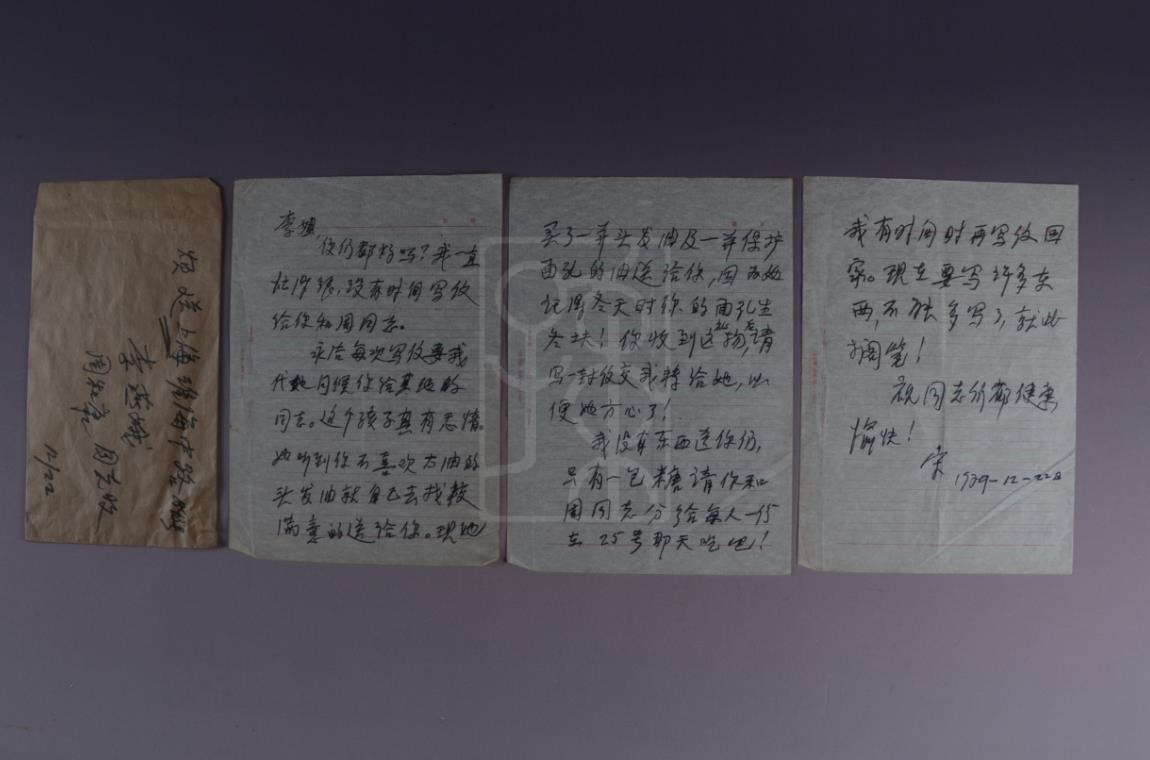 送上海淮海中路
李燕娥
周和康 同志收
12/22
李姐
你们都好吗?我一直
忙得很,没有时间写信
给你和周同志。
永洁每次写信要我
代她问候你给其他的
同志。这个孩子真有志情。
她听到你不喜欢太油的
头发油就自己去找较
满意的送给你。现她
买了一并头发油及一并保护
面孔的油送给你,因为她
记得冬天时你的面孔生
冬块!你收到这礼物后,请
写一封信交我转给她,以
便她方心了!
我没有东西送你们,
只有一包糖请你和
周同志分给每人一份
在25号那天吃吧!
我有时间时再写信回
家。现在要写许多东
西,不能多写了,就此
搁笔!
祝同志们都健康
愉快!
宋 1979-12-22日